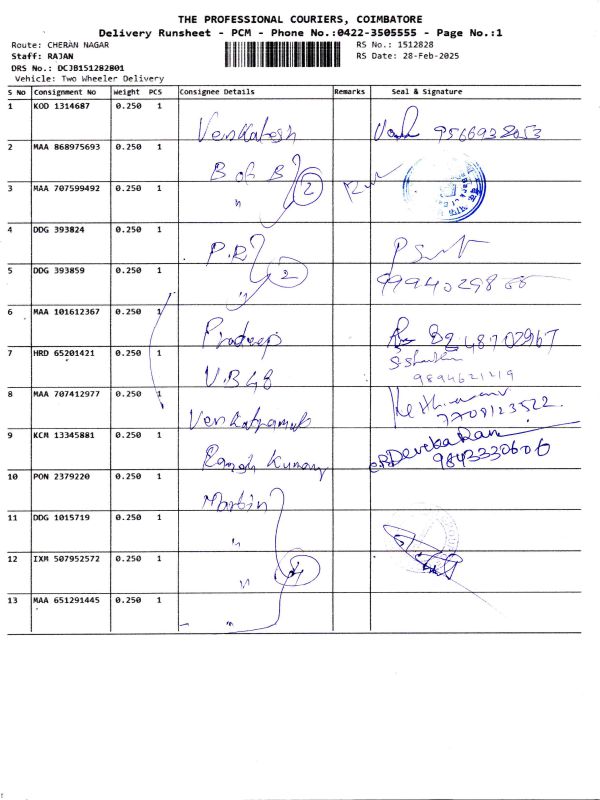 THE PROFESSIONAL COURIERS, COIMBATORE
Delivery Runsheet - PCM - Phone No.:0422-3505555 - Page No.:1
Route: CHERAN NAGAR RS No.: 1512828
Staff: RAJAN RS Date: 28-Feb-2025
DRS No.: DCJB151282801
Vehicle: Two Wheeler Delivery
S No Consignment No Weight PCS Consignee Details Remarks Seal & Signature
1 KOD 1314687 0.250 1
Venkatesh 9566938053
2 MAA 868975693 0.250 1
B of B
3 MAA 707599492 0.250 1 2
"
4 DDG 393824 0.250 1
P.R
5 DDG 393859 0.250 1 2
"
6 MAA 101612367 0.250 1
Pradeep 8248702967
7 HRD 65201421 0.250 1
UBGB 9894621219
8 MAA 707412977 0.250 1
7708123522
9 KCM 13345881 0.250 1 Devekaran
Ramesh Kumar 9843330606
10 PON 2379220 0.250 1
Martin
11 DDG 1015719 0.250 1
"
12 IXM 507952572 0.250 1 4
"
13 MAA 651291445 0.250 1
"